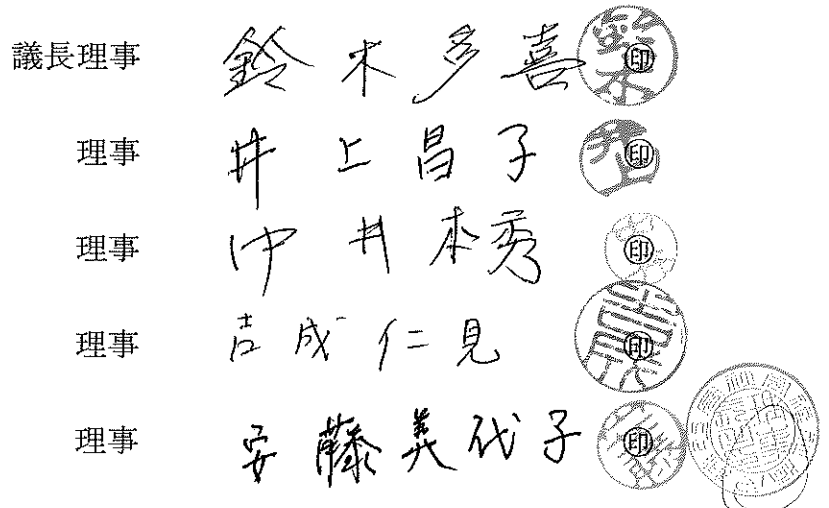 議長理事 鈴木多喜 ㊞
理事 井上昌子 ㊞
理事 仲井本秀 ㊞
理事 吉成仁見 ㊞
理事 安藤美代子 ㊞